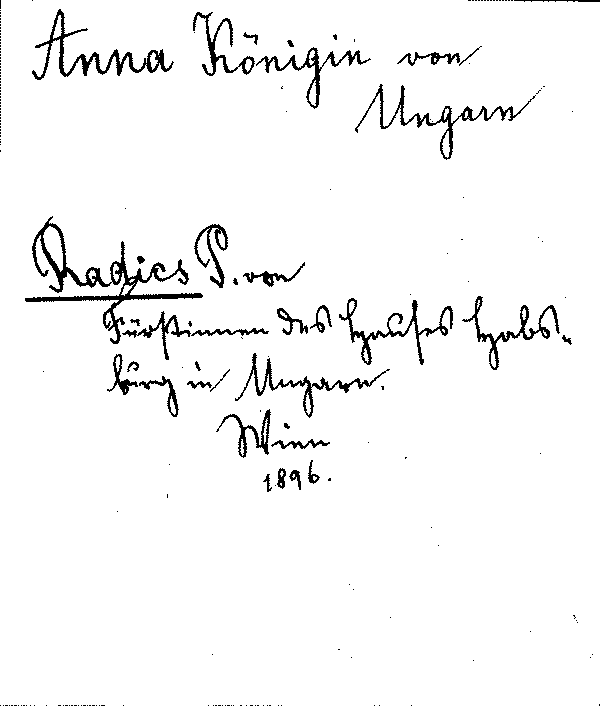 Anna Königin von
Ungarn
Radics P. von
Fürstinnen des Hauses Habs-
burg in Ungarn.
Wien
1896.